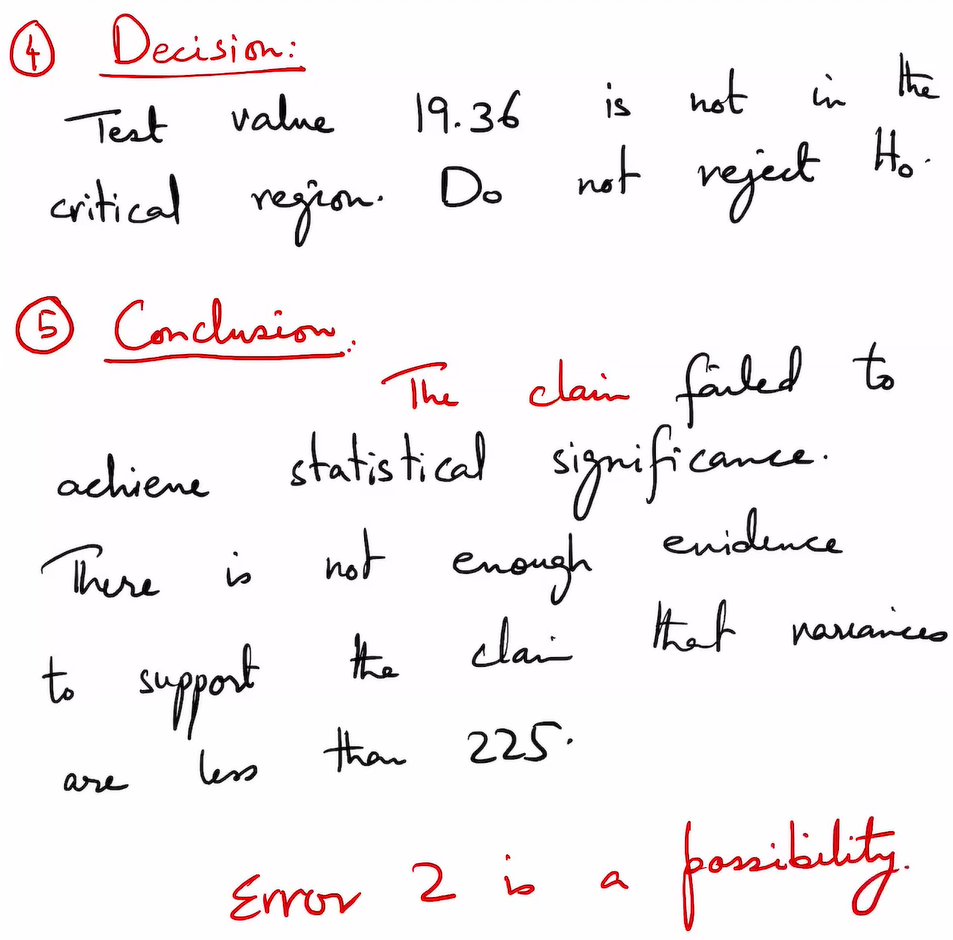 ④ Decision:
Test value 19.36 is not in the
critical region. Do not reject H₀.
⑤ Conclusion.
The claim failed to
achieve statistical significance.
There is not enough evidence
to support the claim that variances
are less than 225.
Error 2 is a possibility.